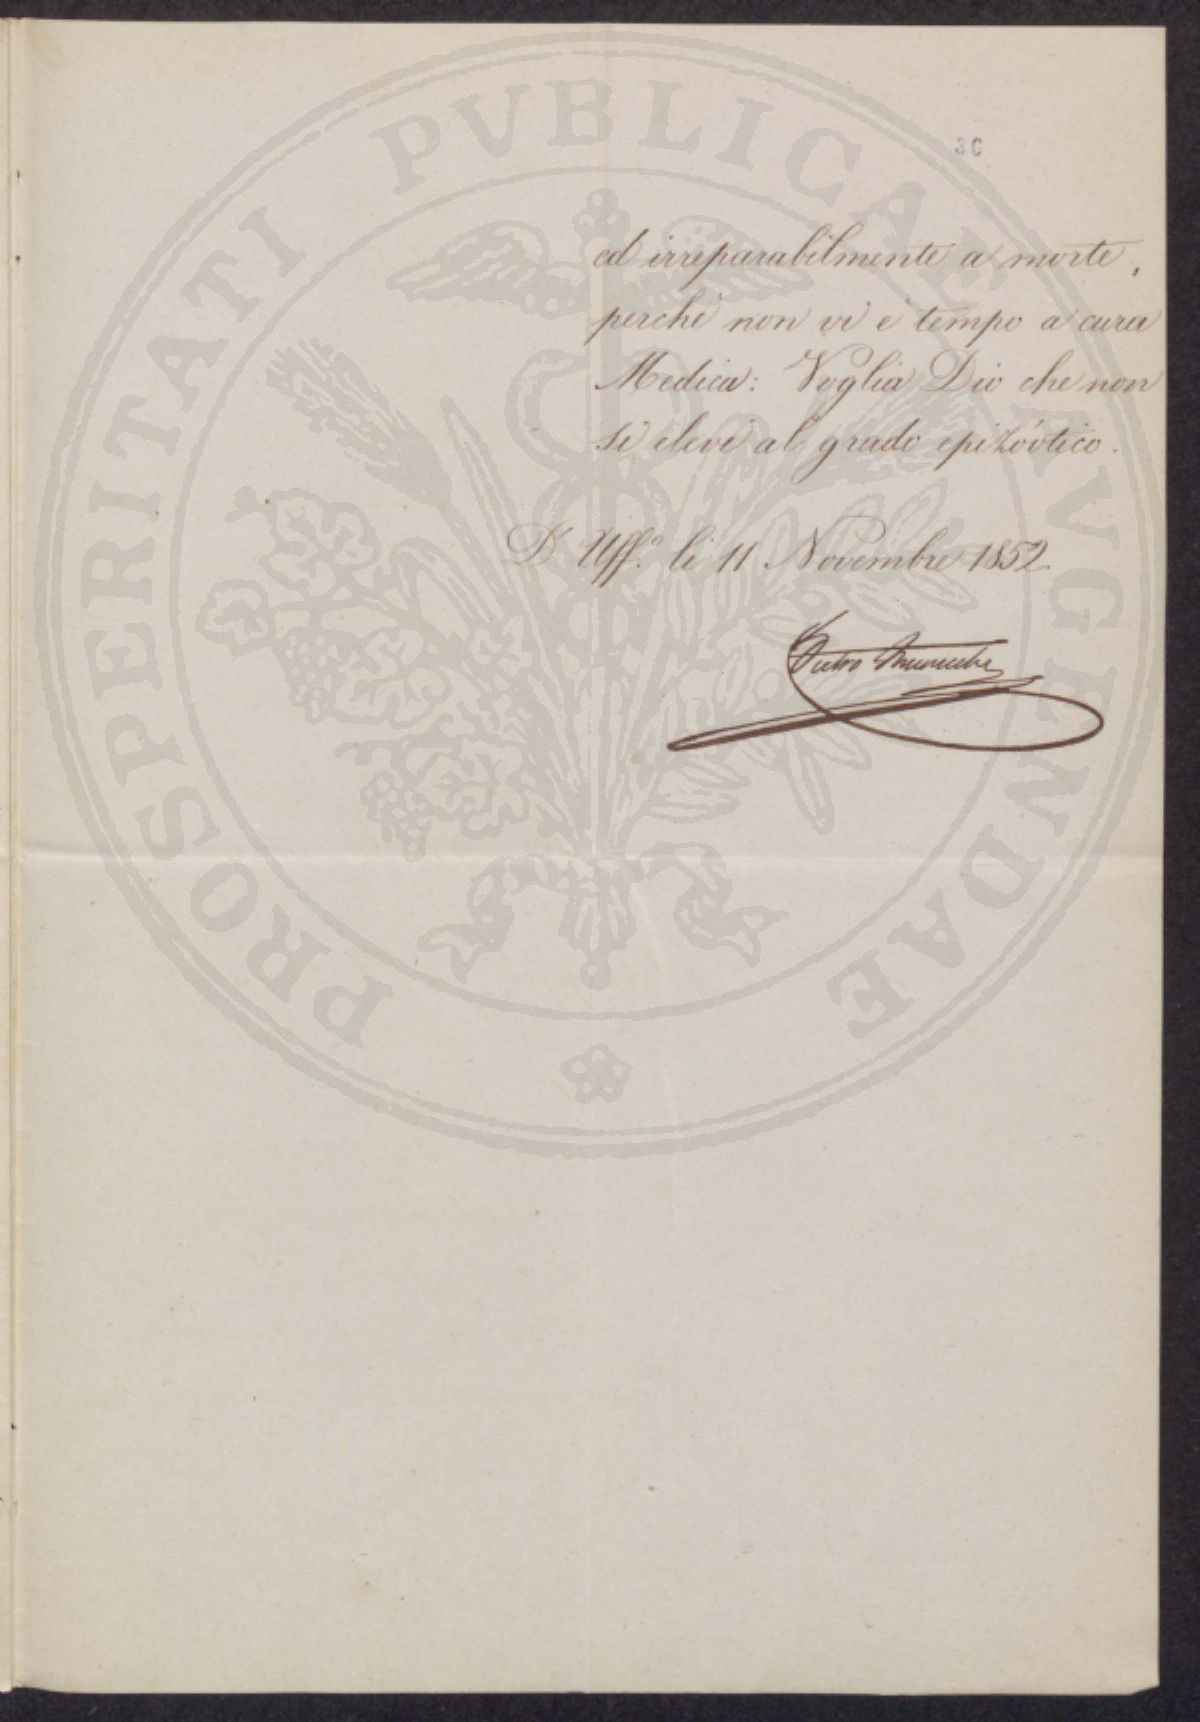 30
ed irreparabilmente a morte,
perchè non vi è tempo a cura
Medica: Voglia Dio che non
si elevi al grado epizóotico.
D Uff.º li 11 Novembre 1852.
Pietro
PROSPERITATI PVBLICAE AVGENDAE